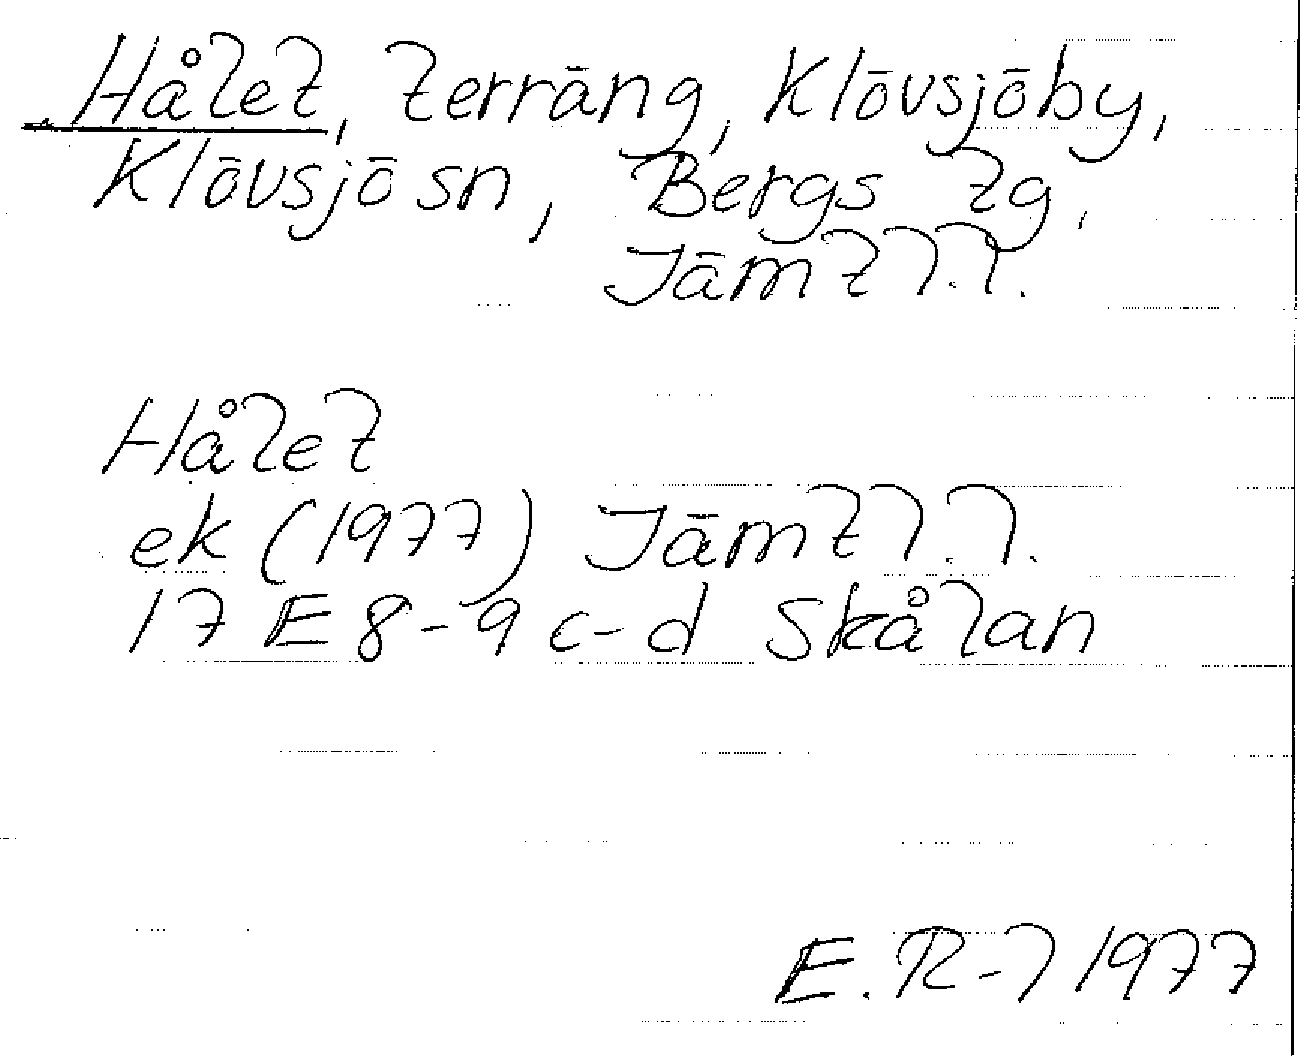 Hålet, terräng, Klövsjöby,
Klövsjö sn, Bergs tg,
Jämtl.l.
Hålet
ek (1977) Jämtl.l.
17 E 8-9 c-d Skålan
E. R-l 1977